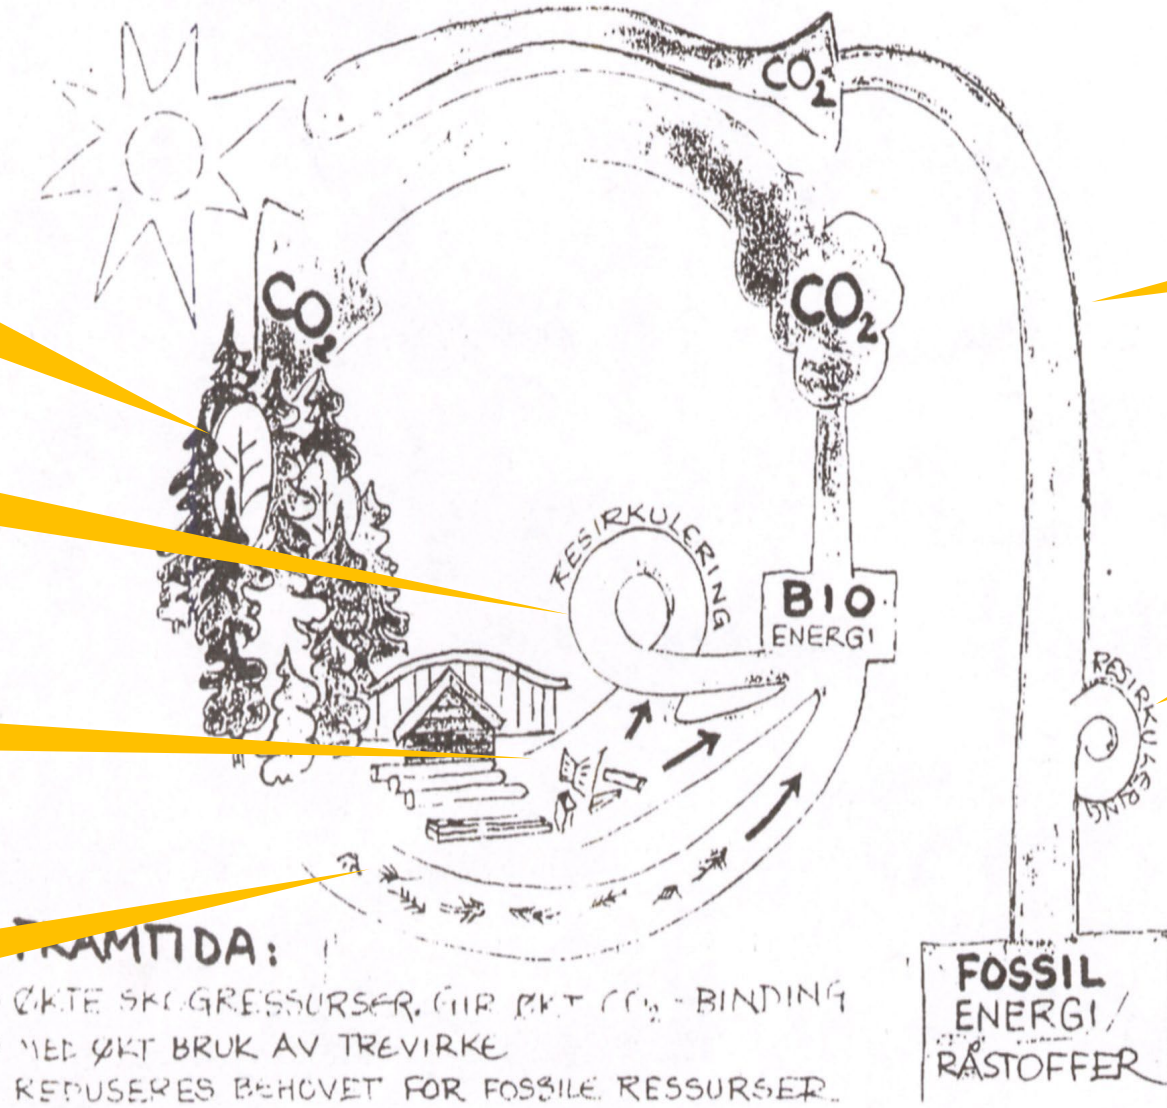 CO2
CO2
CO2
RESIRKULERING
BIO
ENERGI
RESIRKULERING
FRAMTIDA:
ØKTE SKOGRESSURSER GIR ØKT CO2-BINDING
MED ØKT BRUK AV TREVIRKE
REDUSERES BEHOVET FOR FOSSILE RESSURSER
FOSSIL
ENERGI/
RÅSTOFFER